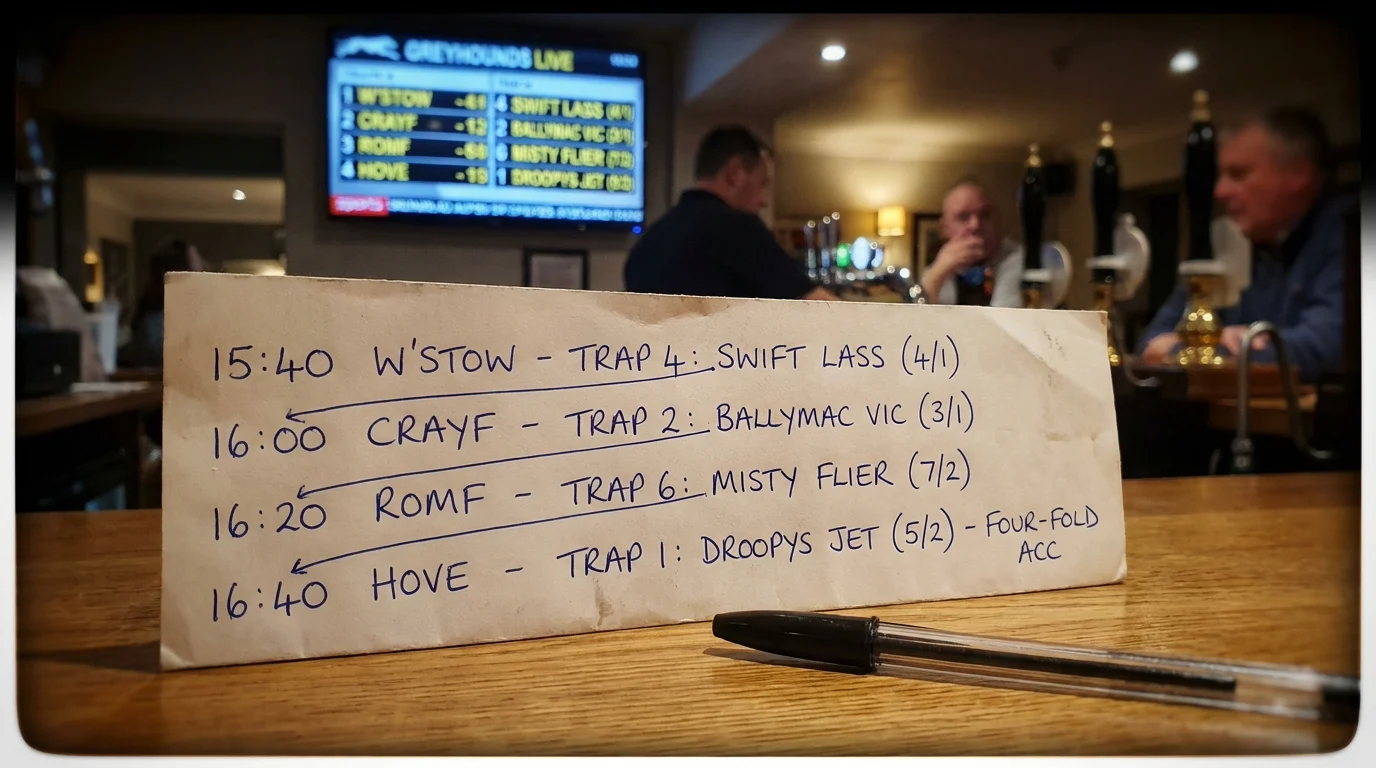 GREYHOUNDS LIVE
1 W'STOW
4 SWIFT LASS
2 CRAYF
2 BALLYMAC VIC
3 ROMF
6 MISTY FLIER
4 HOVE
1 DROOPYS JET
sports
15:40 W'STOW - TRAP 4: SWIFT LASS (4/1)
16:00 CRAYF - TRAP 2: BALLYMAC VIC (3/1)
16:20 ROMF - TRAP 6: MISTY FLIER (7/2)
16:40 HOVE - TRAP 1: DROOPYS JET (5/2) - FOUR-FOLD
ACC